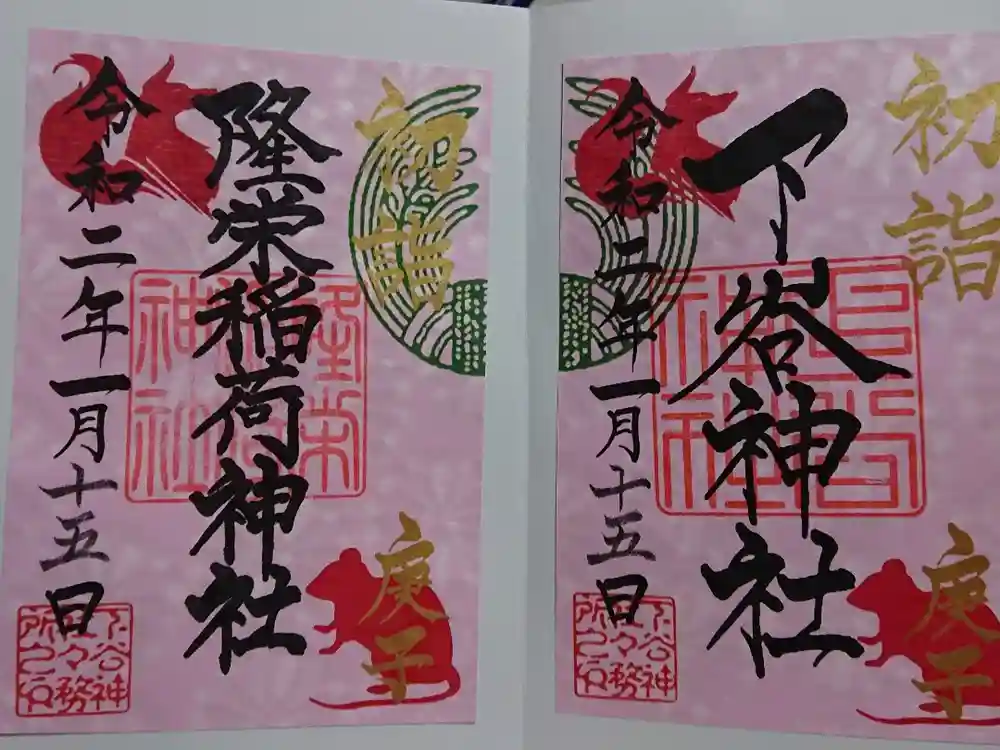 初詣
下谷神社
庚子
令和二年一月十五日
下谷神
社々務
所之印
初詣
隆栄稲荷神社
庚子
令和二年一月十五日
下谷神
社々務
所之印